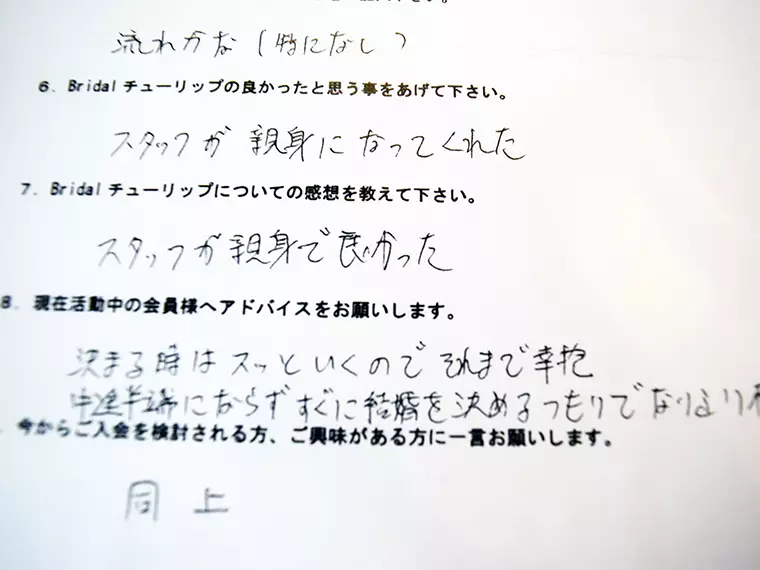 さい。
流れかな(特になし)
6. Bridalチューリップの良かったと思う事をあげて下さい。
スタッフが親身になってくれた
7. Bridalチューリップについての感想を教えて下さい。
スタッフが親身で良かった
8. 現在活動中の会員様へアドバイスをお願いします。
決まる時はスッといくのでそれまで辛抱
中途半端にならずすぐに結婚を決めるつもりで
今からご入会を検討される方、ご興味がある方に一言お願いします。
同上